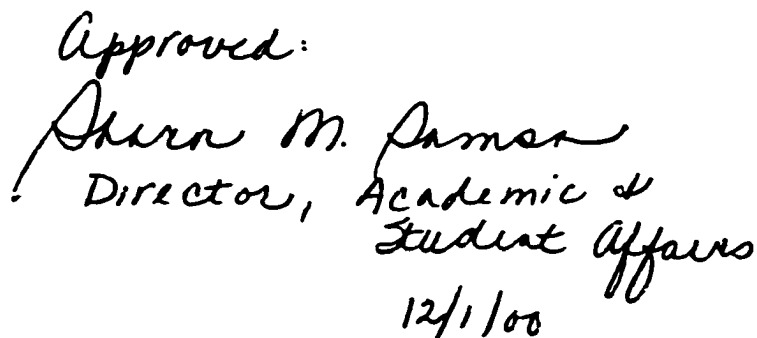 Approved:
Sharon M. Samson
Director, Academic &
Student Affairs
12/1/00